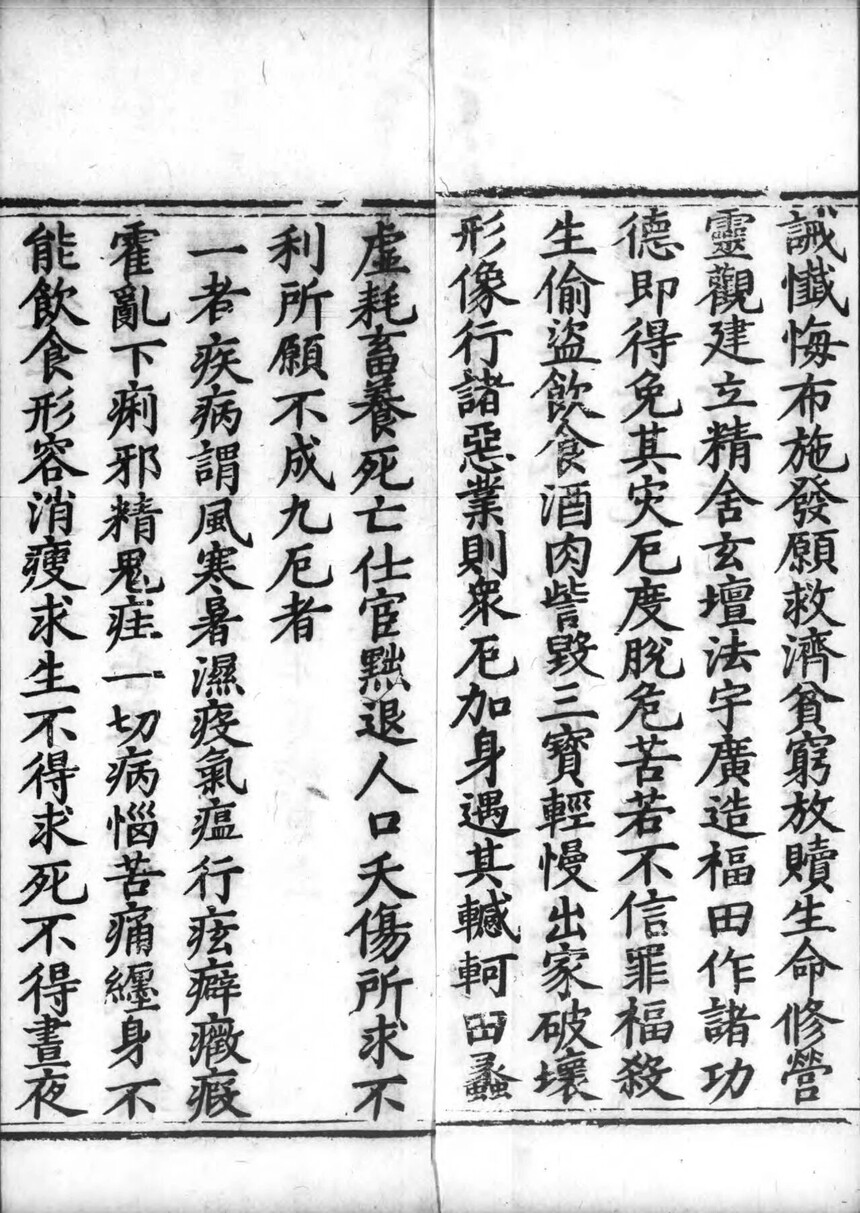 誡懺悔布施發願救濟貧窮放贖生命修營
靈觀建立精舍玄壇法宇廣造福田作諸功
德即得免其灾厄度脫危苦若不信罪福殺
生偷盜飲食酒肉訾毀三寶輕慢出家破壞
形像行諸惡業則衆厄加身遇其轗軻田蠶
虛耗畜養死亡仕宦黜退人口夭傷所求不
利所願不成九厄者
一者疾病謂風寒暑濕疫氣瘟行痃癖癥瘕
霍亂下痢邪精鬼疰一切病惱苦痛纏身不
能飲食形容消瘦求生不得求死不得晝夜